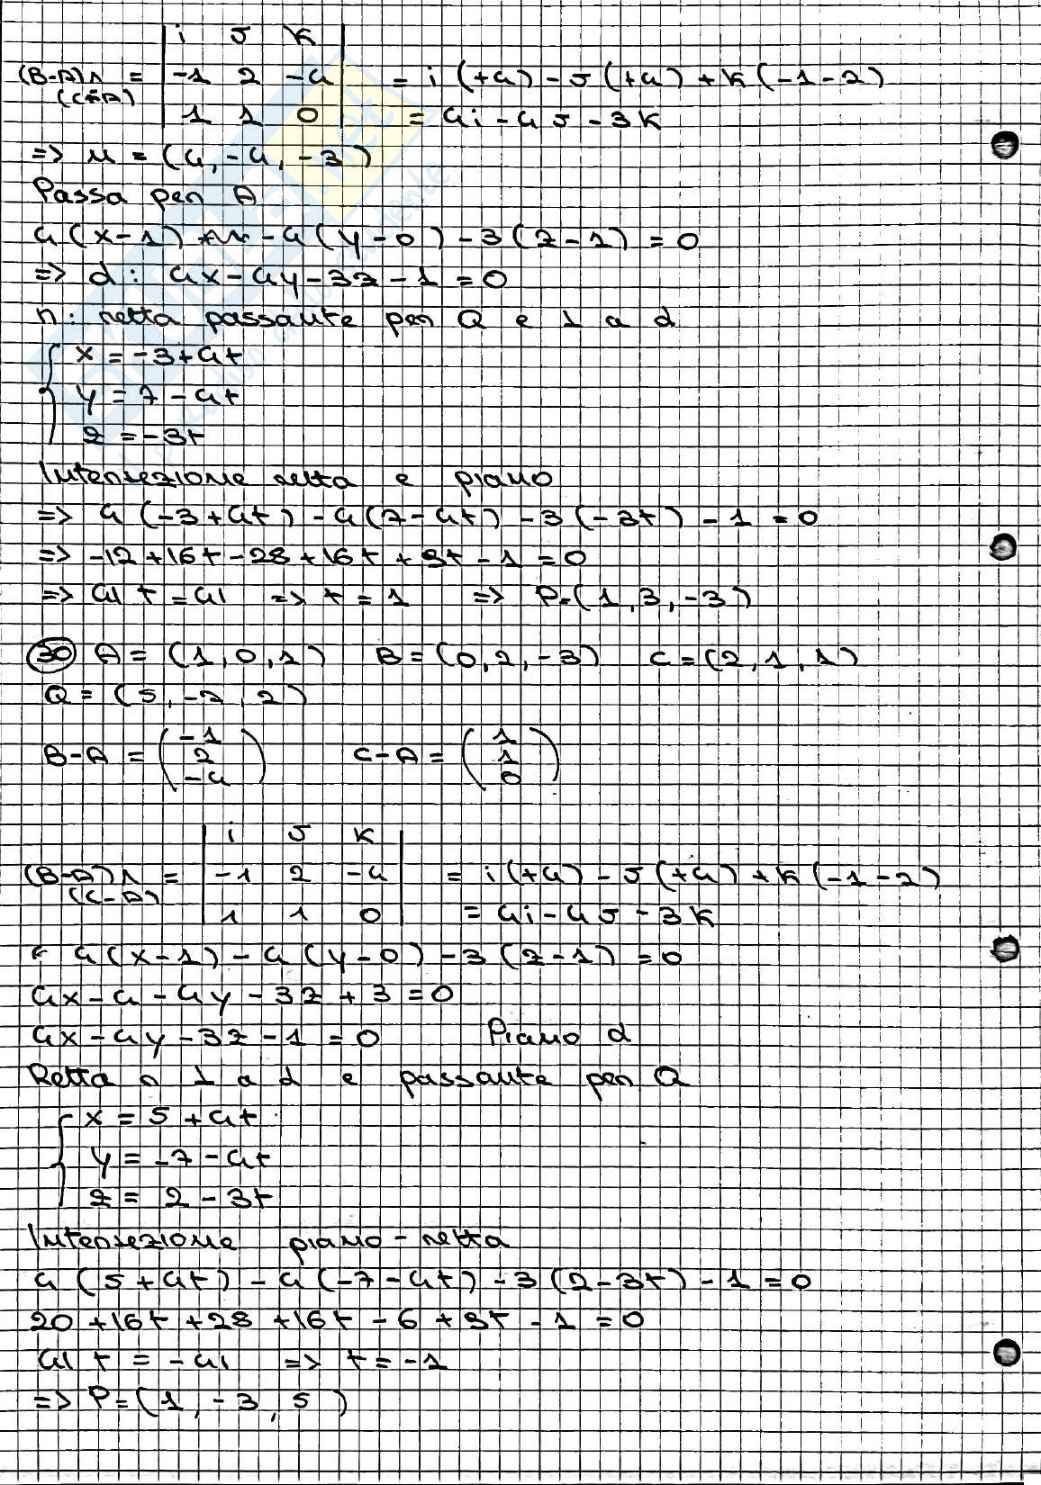 | i J K |
(B-A)∧ = | -1 2 -4 | = i(+4) - J(+4) + K(-1-2)
(C-A) | 1 1 0 | = 4i-4J-3K
=> u = (4, -4, -3)
Passa per A
4(x-1) -4(y-0) -3(z-1) = 0
=> α: 4x-4y-3z-1=0
r: retta passante per Q e ⊥ a α
{ x = -3+4t
y = 7-4t
z = -3t
Intersezione retta e piano
=> 4(-3+4t) -4(7-4t) -3(-3t) -1 = 0
=> -12+16t-28+16t+9t-1=0
=> 41t=41 => t=1 => P=(1,3,-3)
30 A=(1,0,1) B=(0,2,-3) C=(2,1,1)
Q=(5,-7,2)
B-A = (-1 2 -4) C-A = (1 1 0)
| i J K |
(B-A)∧ = | -1 2 -4 | = i(+4) - J(+4) + K(-1-2)
(C-A) | 1 1 0 | = 4i-4J-3K
4(x-1) -4(y-0) -3(z-1) = 0
4x-4-4y-3z+3=0
4x-4y-3z-1=0 Piano α
Retta r ⊥ a α e passante per Q
{ x = 5+4t
y = -7-4t
z = 2-3t
Intersezione piano-retta
4(5+4t) -4(-7-4t) -3(2-3t) -1=0
20+16t+28+16t-6+9t-1=0
41t=-41 => t=-1
=> P=(1,-3,5)